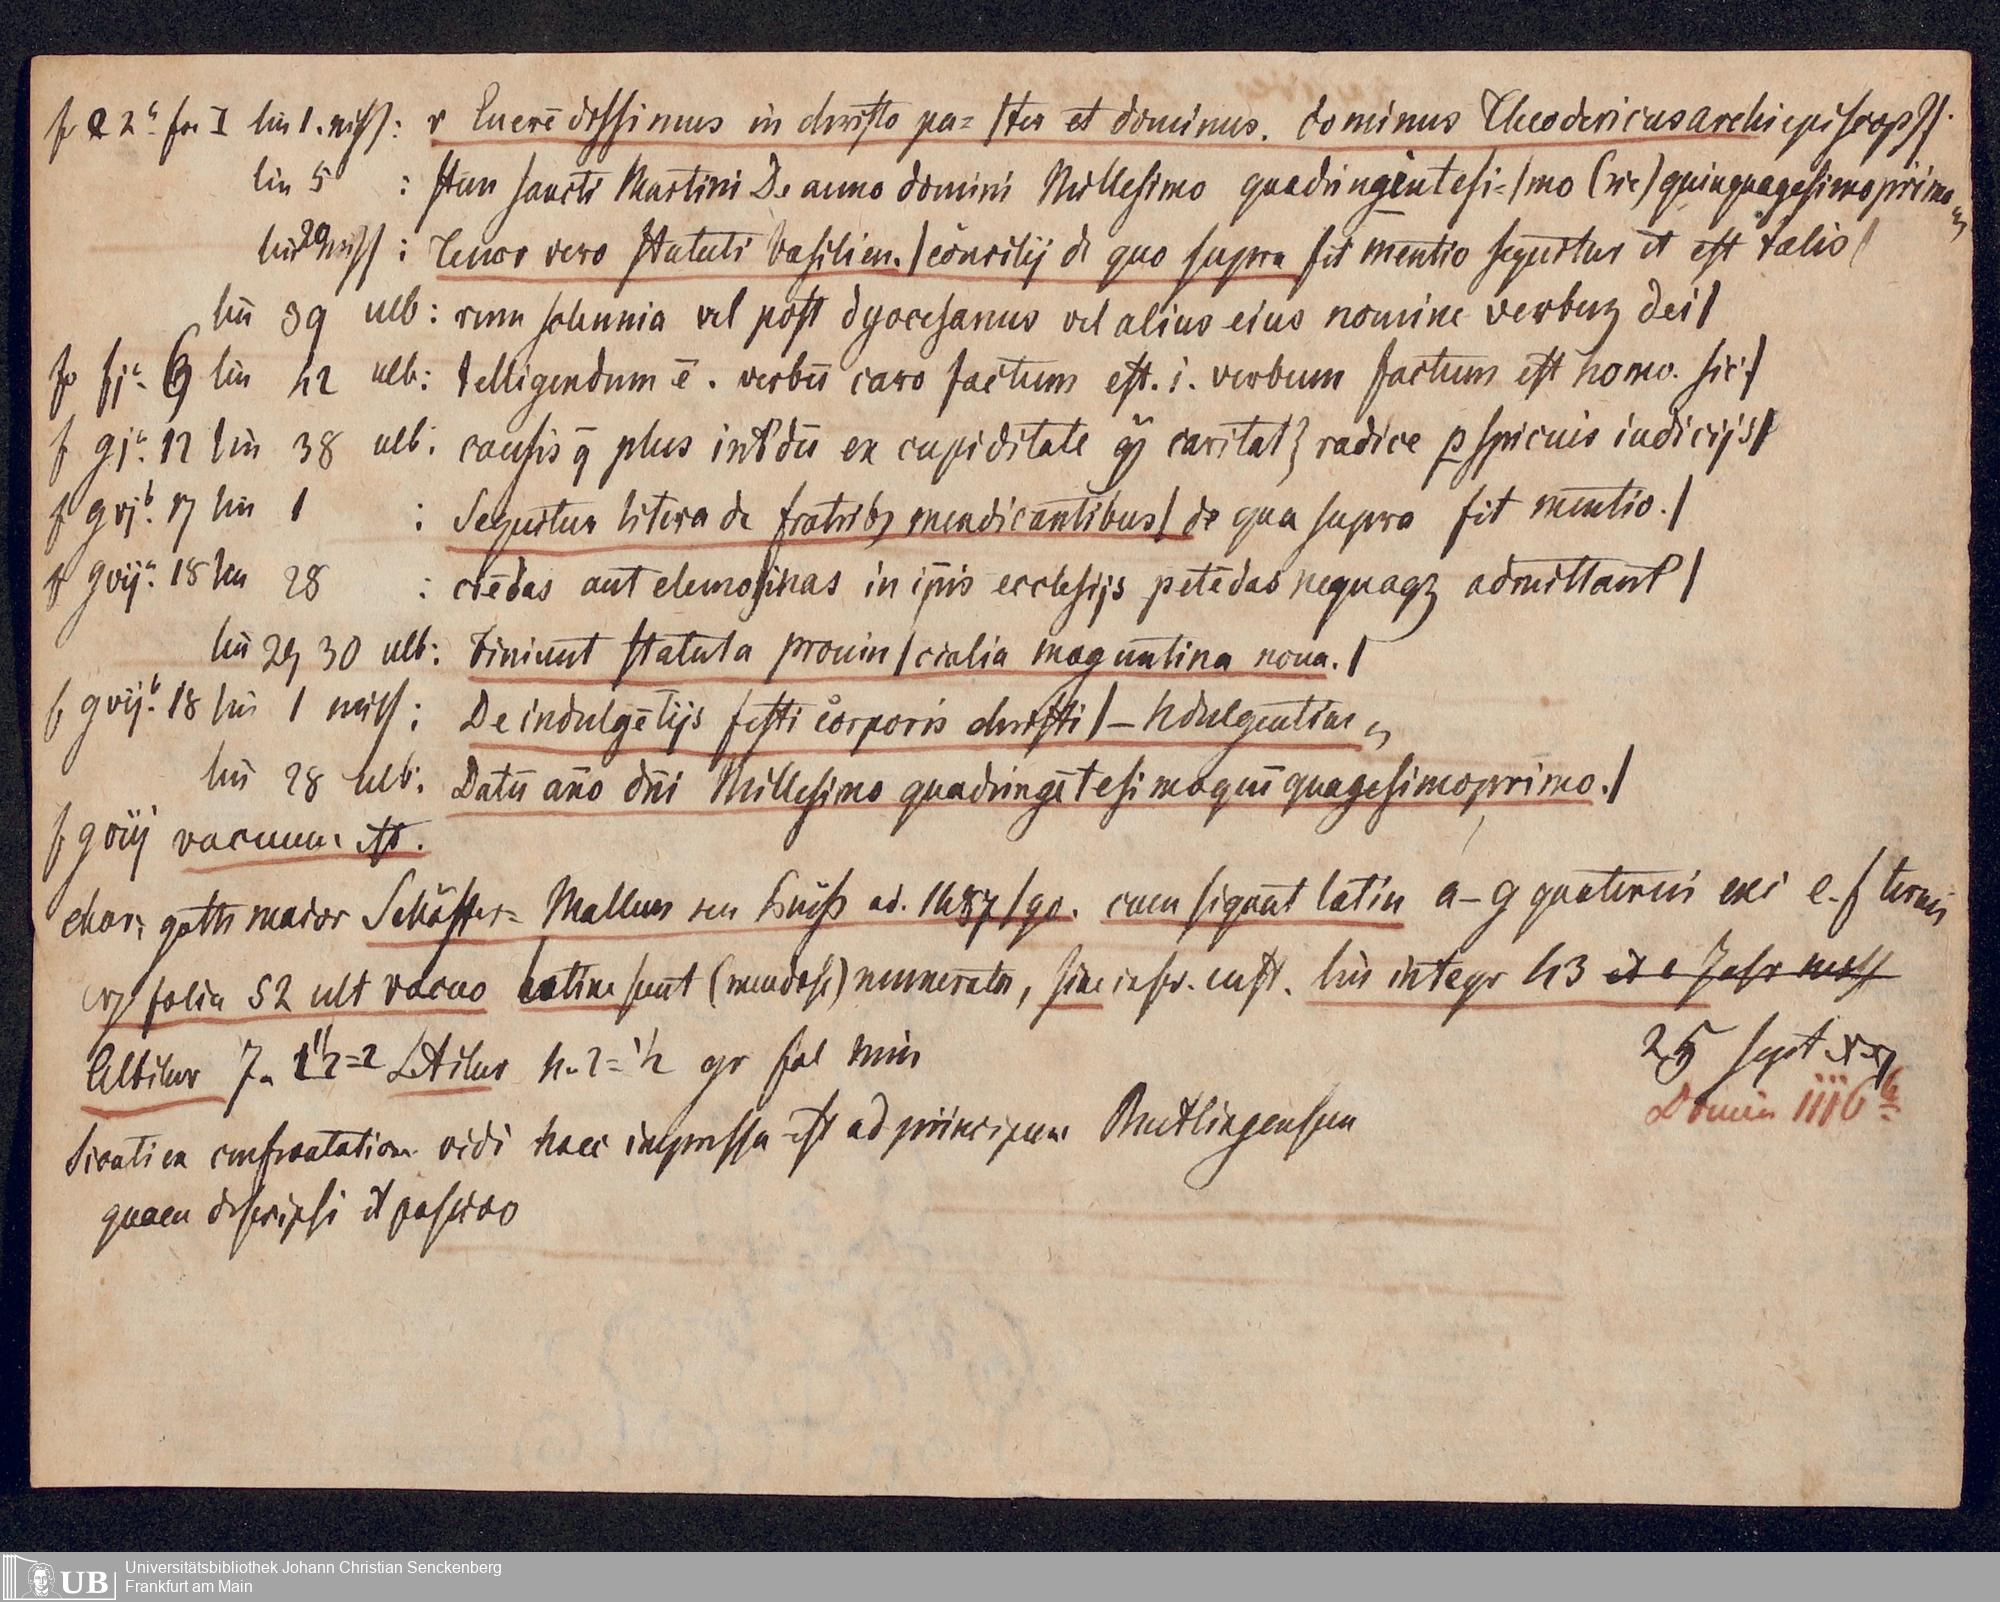 f a 2ᵃ fol I lin 1. miss: r Euerēdissimus in christo pa= /ter et dominus. dominus Theodericus archiepiscop/
lin 5 : stun sancti Martini De anno domini Millesimo quadringentesi=/mo (sic) quinquagesimoprimo
lin 29 miss: Tenor vero statuti basilien./ cōncilij de quo supra fit mentio sequitur et est talis/
lin 39 ulb: rum solennia vel post dyocesanus vel alius eius nomine verbuʒ dei/
fo fjᵃ. lin 42 ulb: telligendum ē. verbū caro factum est. i. verbum factum est homo. sic/
f gjᵃ. 12 lin 38 ulb: causis q̄ plus intdū ex cupiditate radice pspicuis iudicijs/
f gvjᵇ. 17 lin 1 : Sequitur litera de fratribʒ mendicantibus/ de qua supra fit mentio./
f gvijᵃ. 18 lin 28 : ciēdas aut elemosinas in ip̄is ecclesijs petēdas nequaqʒ admittant/
lin 29 30 ulb: Finiunt statuta prouin/cialia maguntina noua./
f gvijᵇ. 18 lin 1 miss: De indulgētijs festi corporis christi/ – Ndulgentiae
lin 28 ulb: Datū año dn̄i Millesimo quadringētesimoquīquagesimoprimo./
f gviij vacuum.
char: goth maior Schäffer= Mallum seu ad. 1487/90. cum signat latin a–g quaternis exi e–f ternis
folia 52 ult vacuo latine sunt (mendose) numerata, sine inscr. cust. lin integr 43
Albilur 7. gr fol min
25 sept
Domin
confrontation vidi haec impressa est ad principem Reutlingensem
quam descripsi et possideo
Universitätsbibliothek Johann Christian Senckenberg
Frankfurt am Main
UB